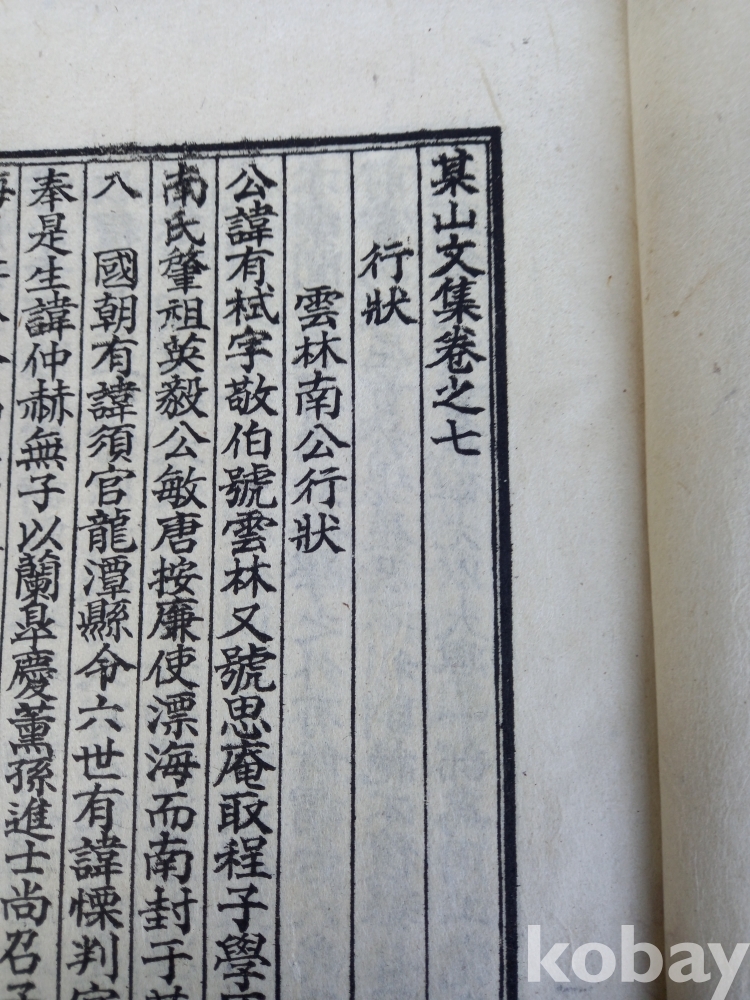 某山文集卷之七
行狀
雲林南公行狀
公諱有栻字敬伯號雲林又號思庵取程子學
南氏肇祖英毅公敏唐按廉使漂海而南封于
八 國朝有諱須官龍潭縣令六世有諱慄判官
奉是生諱仲赫無子以蘭皐慶薰孫進士尚召子
kobay